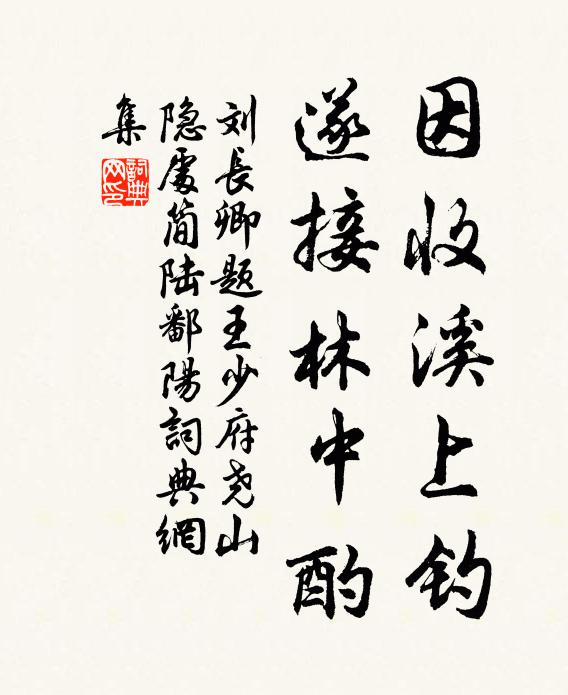 因收溪上钓
遂接林中酌
刘長卿题王少府尧山
隐處简陆鄱陽詞典網
集
詞典
网印